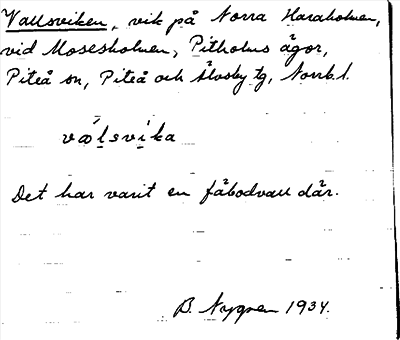 Vallsviken, vik på Norra Haraholmen,
vid Mosesholmen, Pitholms ägor,
Piteå sn, Piteå och Älvsby tg, Norrb. l.
vælsvika
Det har varit en fäbodvall där.
B. Nygren 1934.